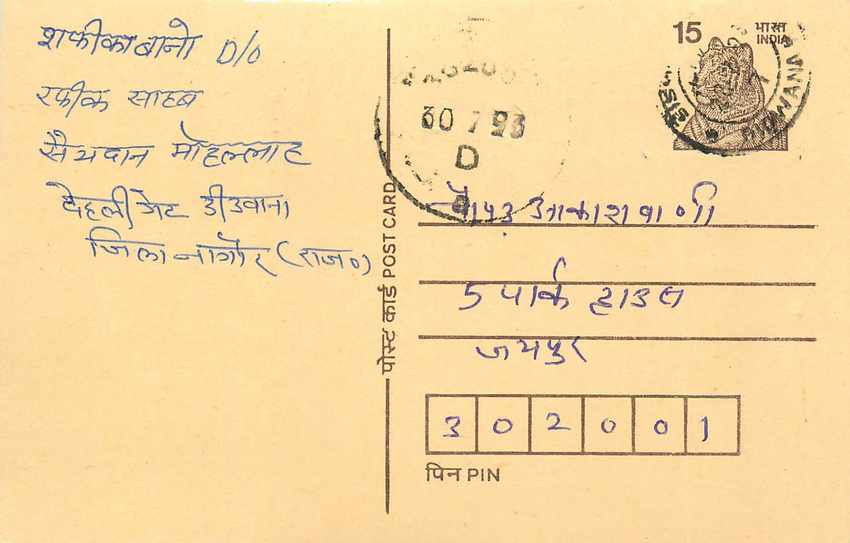 शफीका बानो D/o
रफीक साहब
सैयदान मोहल्लाह
देहली गेट डीडवाना
जिला नागौर (राज०)
पोस्ट कार्ड POST CARD
30 7 93
D
15
भारत
INDIA
आकाशवाणी
5 पार्क हाउस
जयपुर
3 0 2 0 0 1
पिन PIN